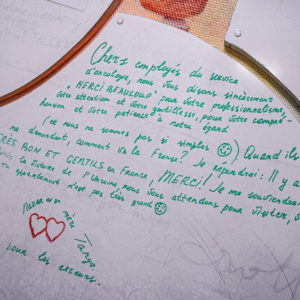 Chers employés du service
d'oncologie, nous vous disons sincèrement
"MERCI BEAUCOUP" pour votre professionnalisme,
votre attention et votre gentillesse, pour votre compré-
hension et votre patience à notre égard
(et nous ne sommes pas si simples ☺) Quand ils
me demandent, comment va la France? Je répondrai: Il y a
TRÈS BON ET GENTILS en France, MERCI! Je me souviendrai
la victoire de l'Ukraine, nous vous attendons pour visiter,
n'est pas très grand ☺
mère Tanya
pour les erreurs.